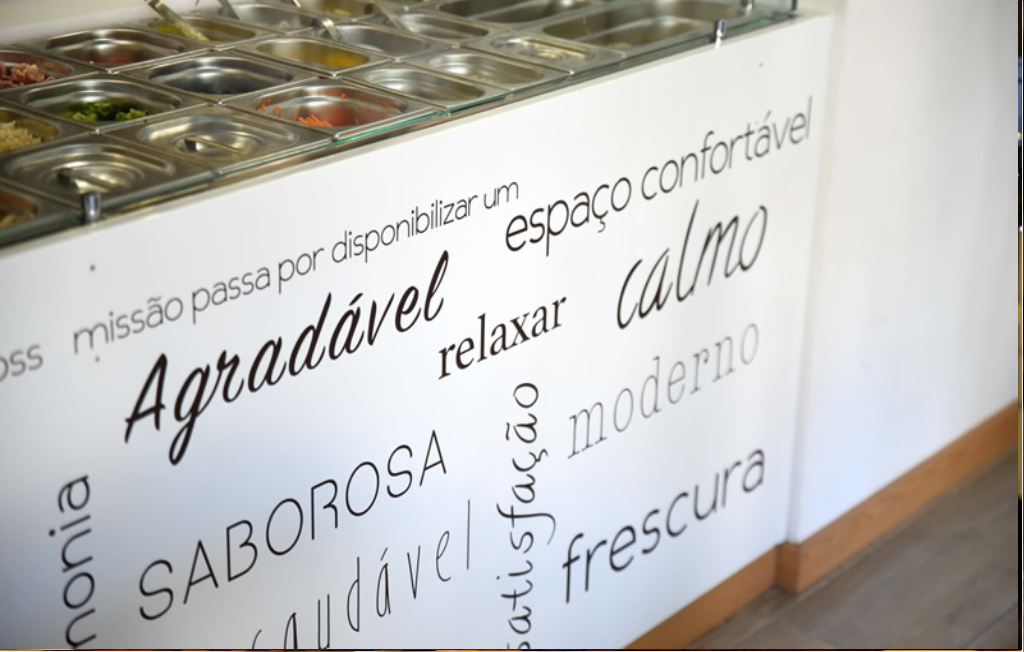 missão passa por disponibilizar um
espaço confortável
Agradável
relaxar
calmo
moderno
SABOROSA
satisfação
frescura
saudável